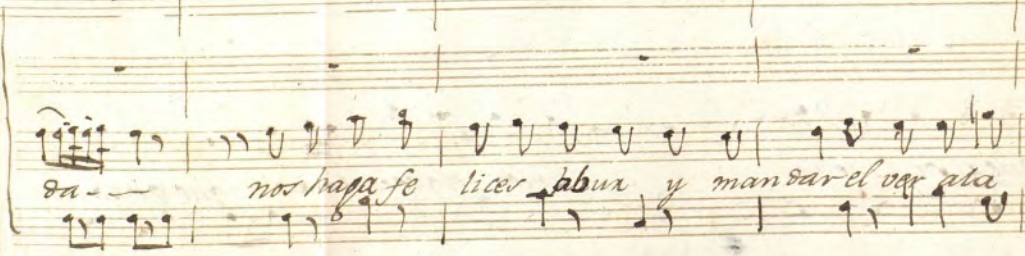 da - - nos haga fe lices abur y mandar el ver ala